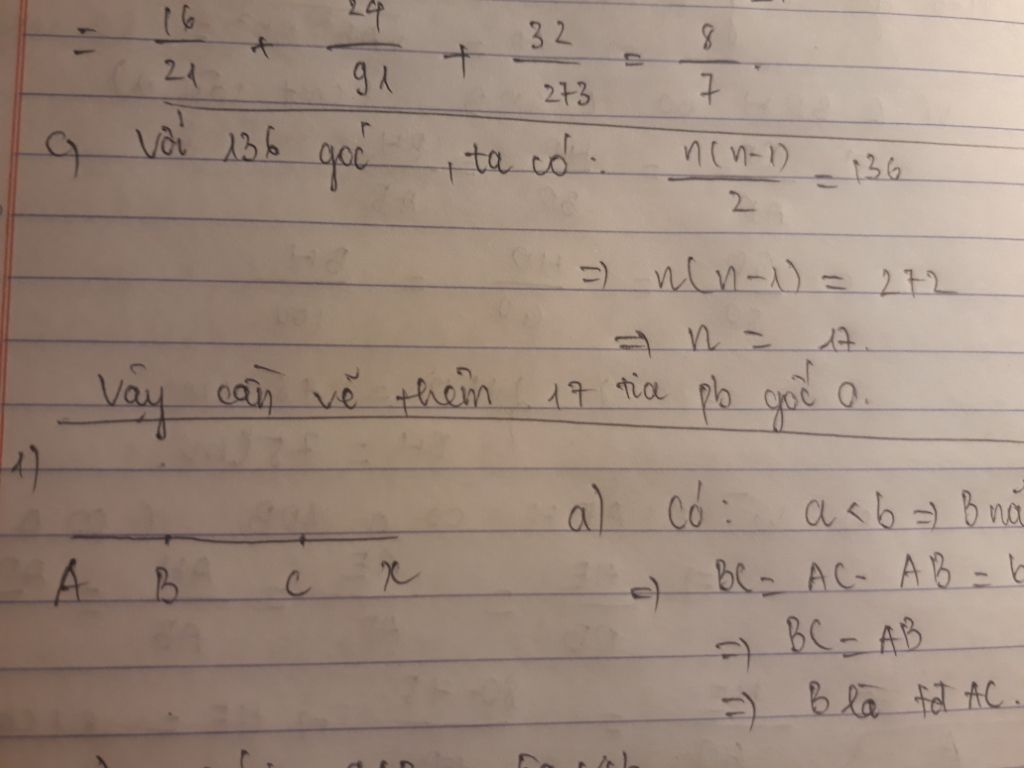 = 16/21 + 24/91 + 32/273 = 8/7.
c) Với 136 góc, ta có: n(n-1)/2 = 136
=> n(n-1) = 272
=> n = 17.
Vậy cần vẽ thêm 17 tia pb gốc O.
1)
a) Có: a < b => B
A B C x
=> BC = AC - AB =
=> BC = AB
=> B là tđ AC.